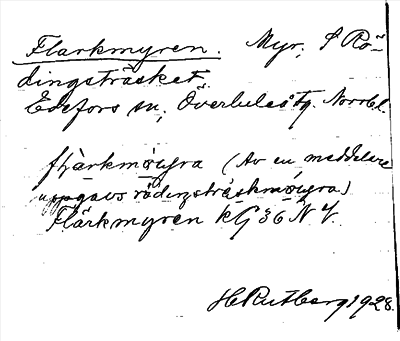 Flarkmyren. Myr, S Rö-
dingsträsket.
Edefors sn, Överbules tg. Norrbl.
flarkmøuyra (Av en meddelare
uppgavs rödingsträskmøuyra)
Flarkmyren kG36NV.
H Rutberg 1928.